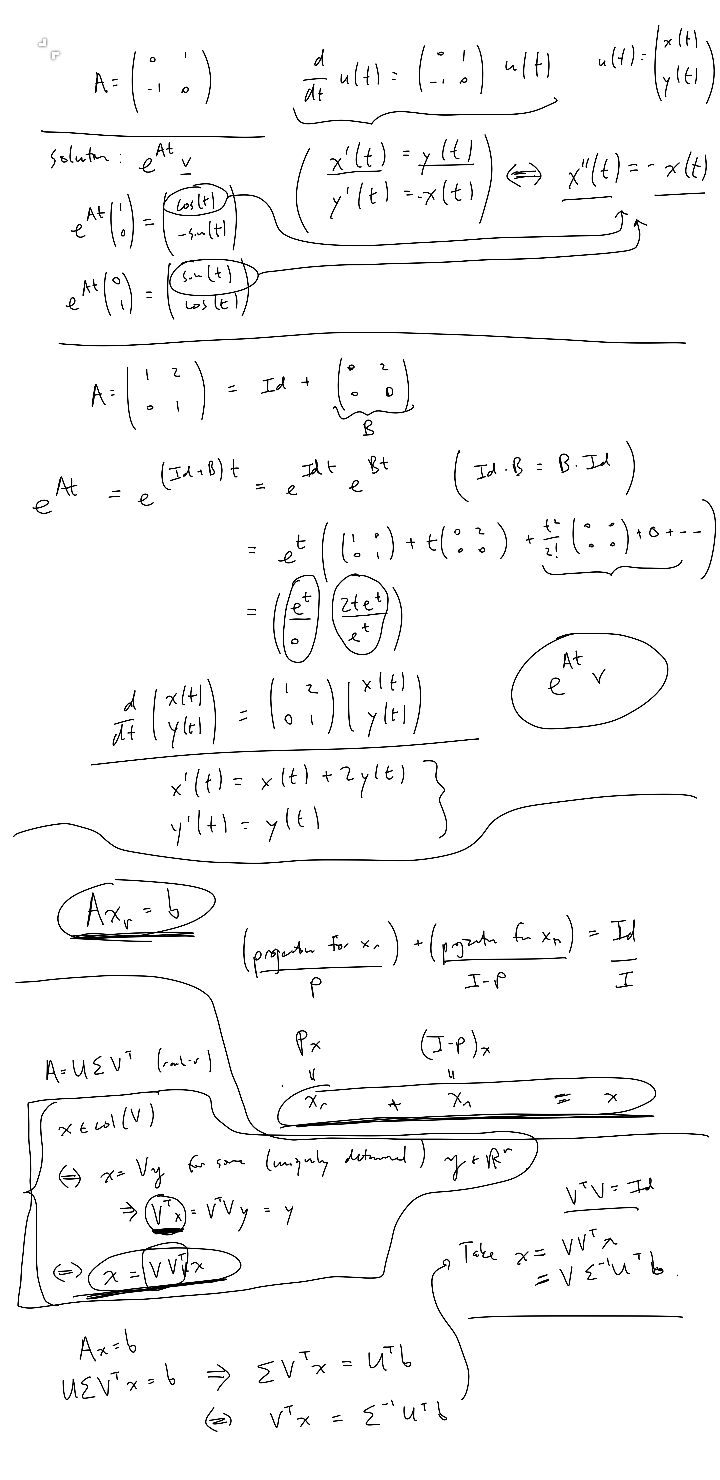 A = ( 0 1 ; -1 0 )   d/dt u(t) = ( 0 1 ; -1 0 ) u(t)   u(t) = ( x(t) ; y(t) )
Solution : e^{At} v   ( x'(t) = y(t) ; y'(t) = -x(t) ) ⟺ x''(t) = - x(t)
e^{At} ( 1 ; 0 ) = ( cos(t) ; -sin(t) )
e^{At} ( 0 ; 1 ) = ( sin(t) ; cos(t) )
A = ( 1 2 ; 0 1 ) = Id + ( 0 2 ; 0 0 )
B
e^{At} = e^{(Id+B)t} = e^{Idt} e^{Bt}   ( Id · B = B · Id )
= e^t ( ( 1 0 ; 0 1 ) + t ( 0 2 ; 0 0 ) + t²/2! ( 0 0 ; 0 0 ) + 0 + -- )
= ( e^t 2te^t ; 0 e^t )
e^{At} v
d/dt ( x(t) ; y(t) ) = ( 1 2 ; 0 1 ) ( x(t) ; y(t) )
x'(t) = x(t) + 2y(t)
y'(t) = y(t)
Ax_r = b
(projection for x_r) + (projection for x_n) = Id
P   I-P   I
Px   (I-P)x
x_r + x_n = x
A = UΣV^T (rank-r)
x ∈ col(V)
⟺ x = Vy for some (uniquely determined) y ∈ R^n
⇒ V^T x = V^T V y = y
⟺ x = V V^T x
V^T V = Id
Take x = VV^T x
= V Σ^{-1} U^T b.
Ax = b
UΣV^T x = b ⇒ ΣV^T x = U^T b
⟺ V^T x = Σ^{-1} U^T b